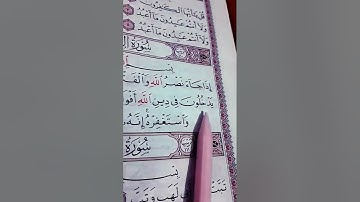 قُلْ يَٰٓأَيُّهَا ٱلْكَٰفِرُونَ
وَلَآ أَنتُمْ عَٰبِدُونَ مَآ أَعْبُدُ
وَلَآ أَنتُمْ عَٰبِدُونَ مَآ أَعْبُدُ
سُورَةُ
بِسْمِ
إِذَا جَآءَ نَصْرُ ٱللَّهِ وَٱلْفَ
يَدْخُلُونَ فِى دِينِ ٱللَّهِ أَفْوَ
وَٱسْتَغْفِرْهُ إِنَّهُۥ
سُورَةُ
بِسْ
تَبَّتْ لَهَبٍ وَتَبَّ